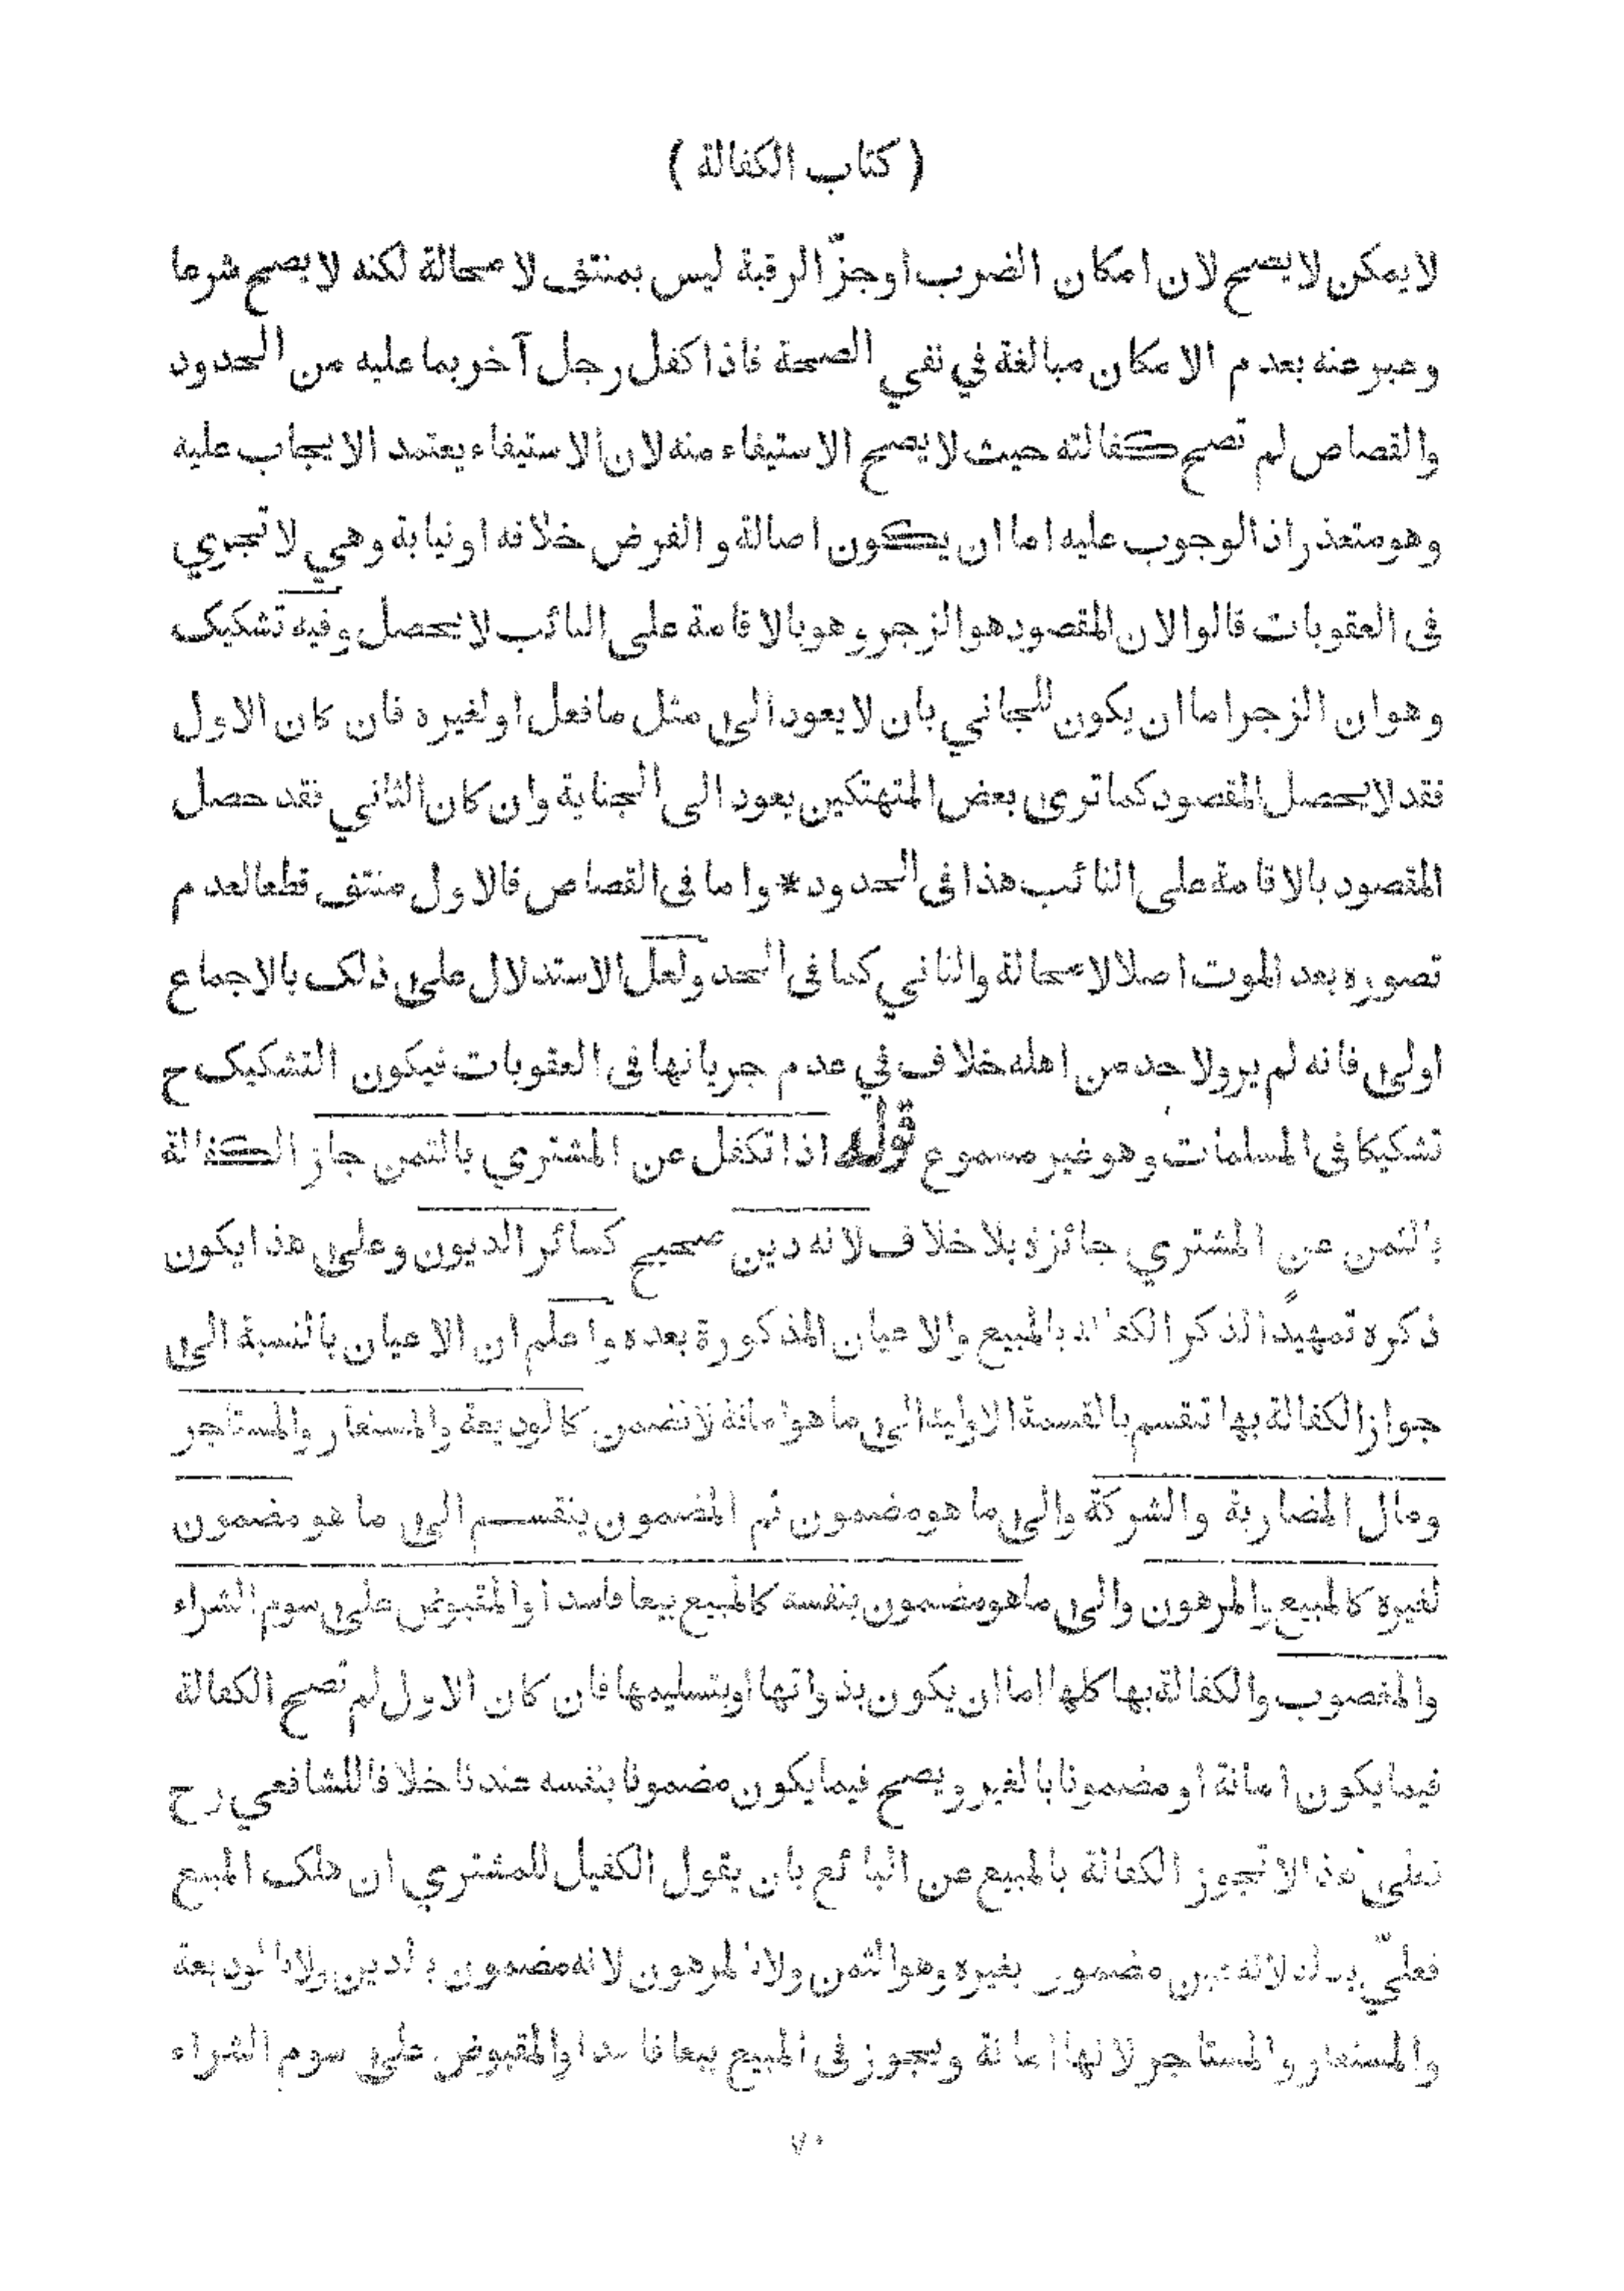 ( كتاب الكفالة )
لا يمكن لا يصح لان امكان الضرب او جزّ الرقبة ليس بمنتف لا محالة لكنه لا يصح شرعا
وعبر عنه بعدم الامكان مبالغة في نفي الصحة فاذا كفل رجل آخر بما عليه من الحدود
والقصاص لم تصح كفالته حيث لا يصح الاستيفاء منه لان الاستيفاء يعتمد الايجاب عليه
وهو متعذر اذ الوجوب عليه اما ان يكون اصالة و الفرض خلافه او نيابة وهي لا تجري
فى العقوبات قالوا لان المقصود هو الزجر وهو بالاقامة على النائب لا يحصل وفيه تشكيك
وهو ان الزجر اما ان يكون للجاني بان لا يعود الى مثل ما فعل او لغيره فان كان الاول
فقد لا يحصل المقصود كما ترى بعض المتهتكين يعود الى الجناية وان كان الثاني فقد حصل
المقصود بالاقامة على النائب هذا فى الحدود * واما فى القصاص فالاول منتف قطعا لعدم
تصوره بعد الموت اصلا لا محالة والثاني كما فى الحد ولعل الاستدلال على ذلك بالاجماع
اولى فانه لم يرو لاحد من اهله خلاف في عدم جريانها فى العقوبات فيكون التشكيك ح
تشكيكا فى المسلمات وهو غير مسموع قوله اذا تكفل عن المشتري بالثمن جاز الكفالة
بالثمن عن المشتري جائزة بلا خلاف لانه دين صحيح كسائر الديون وعلى هذا يكون
ذكره تمهيدا لذكر الكفالة بالمبيع والاعيان المذكورة بعده واعلم ان الاعيان بالنسبة الى
جواز الكفالة بها تنقسم بالقسمة الاولية الى ما هو امانة لا تضمن كالوديعة والمستعار والمستاجر
ومال المضاربة والشركة والى ما هو مضمون ثم المضمون ينقسم الى ما هو مضمون
لغيره كالمبيع والمرهون والى ما هو مضمون بنفسه كالمبيع بيعا فاسدا والمقبوض على سوم الشراء
والمغصوب والكفالة بها كلها اما ان يكون بذواتها او بتسليمها فان كان الاول لم تصح الكفالة
فيما يكون امانة او مضمونا بالغير ويصح فيما يكون مضمونا بنفسه عندنا خلافا للشافعي رح
فعلى هذا لا تجوز الكفالة بالمبيع عن البائع بان يقول الكفيل للمشتري ان هلك المبيع
فعليّ بدله لانه عين مضمون بغيره وهو الثمن ولا بالمرهون لانه مضمون بالدين ولا بالوديعة
والمستعار والمستاجر لانها امانة وتجوز فى المبيع بيعا فاسدا والمقبوض على سوم الشراء